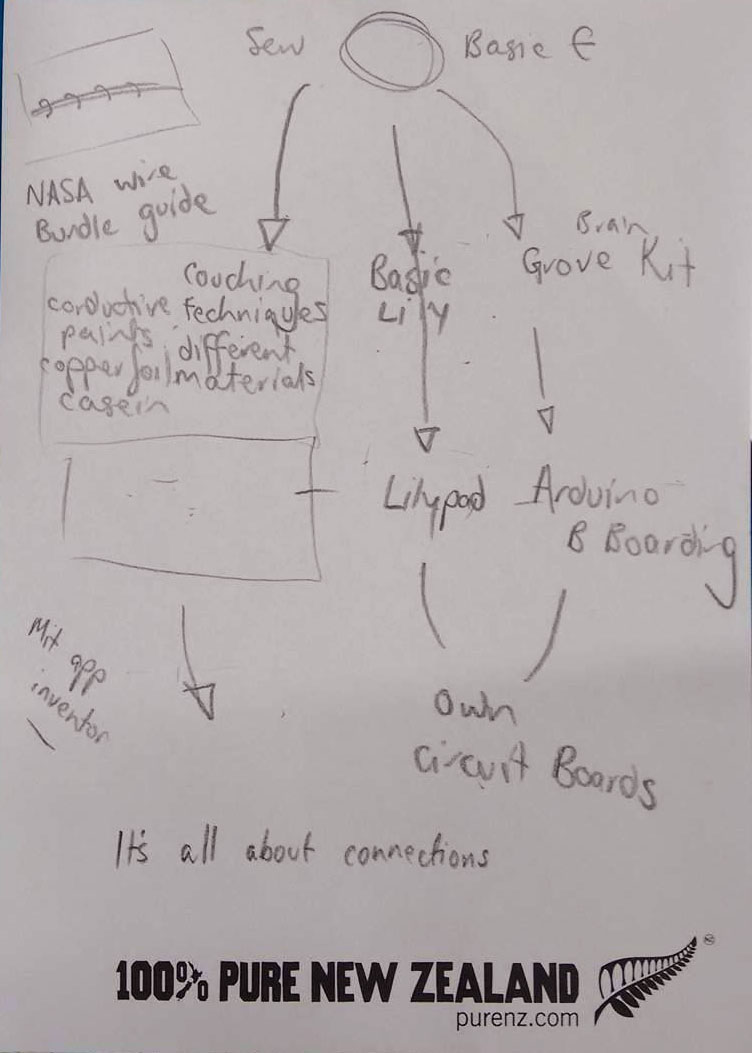 Sew
Basic E
NASA wire
Bundle guide
Brain
Grove Kit
Couching
techniques
different
materials
conductive
paints
copper foil
casein
Basic
Lily
Lilypad
Arduino
B Boarding
Mit app
inventor
Own
Circuit Boards
It's all about connections
100% PURE NEW ZEALAND
purenz.com